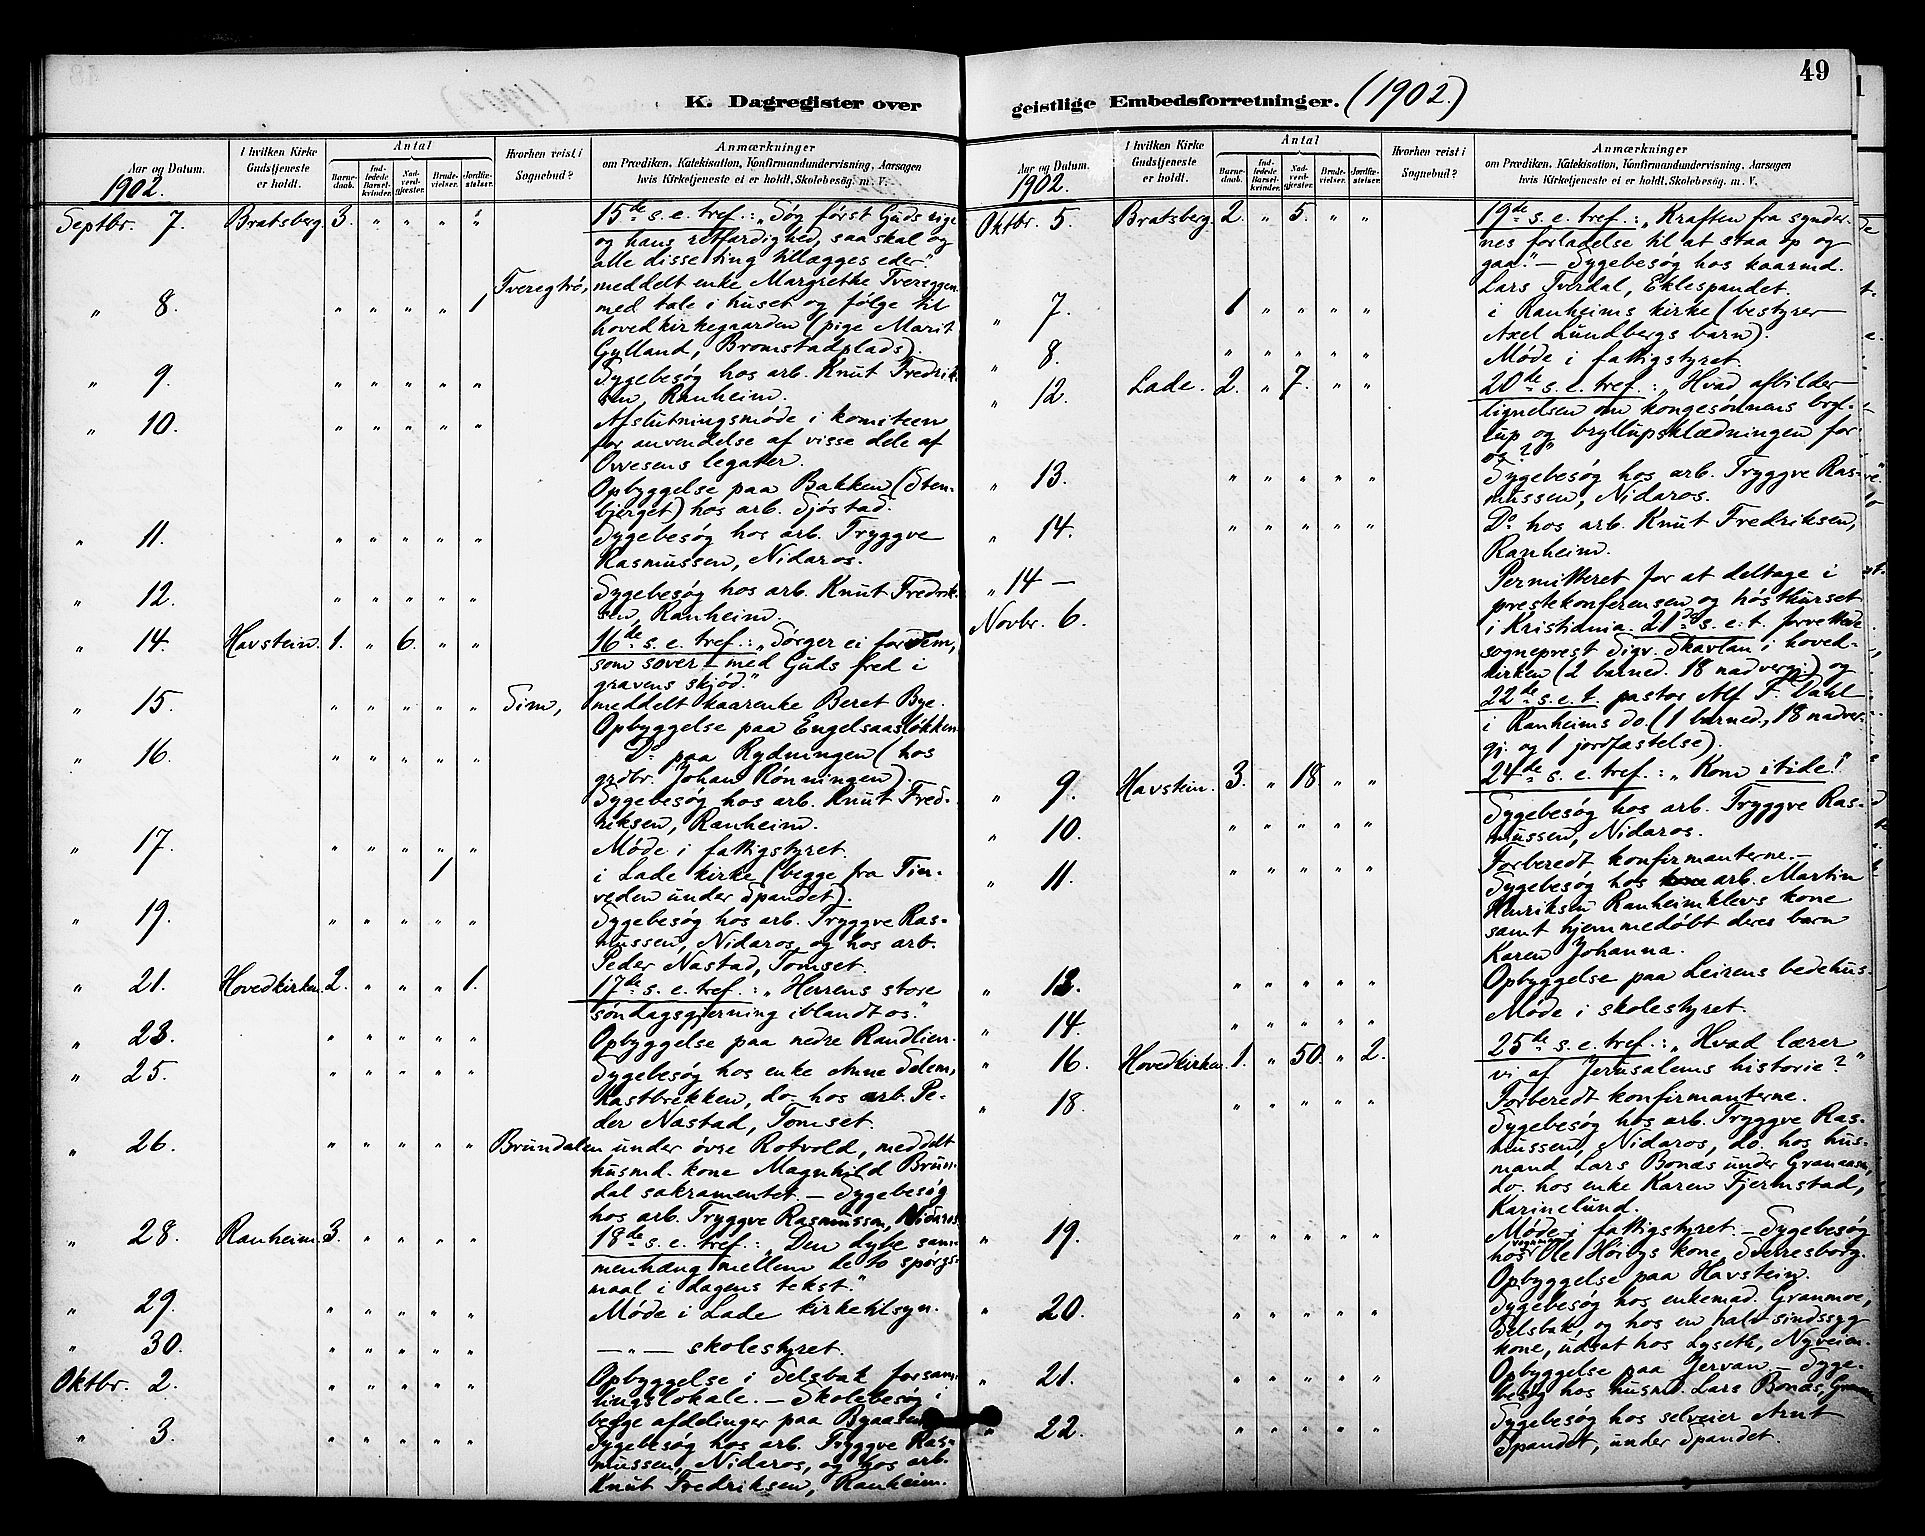 49
K. Dagregister over
geistlige Embedsforretninger. (1902.)
Aar og Datum.
1902.
I hvilken Kirke
Gudstjeneste
er holdt.
Antal
Barne-
daab.
Ind-
ledede
Barsel-
kvinder.
Nad-
verd-
gjester.
Brude-
vielser.
Jordfæ-
stelser.
Hvorhen reist i
Sognebud?
Anmærkninger
om Prædiken, Katekisation, Konfirmandundervisning, Aarsagen
hvis Kirketjeneste ei er holdt, Skolebesøg, m. V.
Septbr. 7. Bratsberg. 3. " " " " 15de s. e. tref.: "Søg først Guds rige
og hans retfærdighed, saa skal og
alle disse ting tillægges eder."
" 8. " " " " 1 Tveregtrø, meddelt enke Margrethe Tvereggen
med tale i huset og følge til
hovedkirkegaarden (pige Marit
Gylland, Bromstadplads).
" 9. " " " " " Sygebesøg hos arb. Knut Fredrik-
sen, Ranheim.
" 10. " " " " " Afslutningsmøde i komiteen
for anvendelse af visse dele af
Ovvesens legater.
Opbyggelse paa Bakken (Sten-
bjerget) hos arb. Sjøstad.
" 11. " " " " " Sygebesøg hos arb. Tryggve
Rasmussen, Nidaros.
" 12. " " " " " Sygebesøg hos arb. Knut Fredrik-
sen, Ranheim.
" 14. Havstein. 1. " 6. " " 16de s. e. tref.: "Sørger ei for dem,
som sover – med Guds fred i
gravens skjød."
" 15. " " " " " Sim, meddelt kaarenke Beret Bye.
Opbyggelse paa Engelsaasløkken
" 16. " " " " " Do paa Rydningen (hos
grdbr. Johan Rønningen).
Sygebesøg hos arb. Knut Fred-
riksen, Ranheim.
" 17. " " " " " Møde i fattigstyret.
1 i Lade kirke (begge fra Tier-
veden under Spandet).
" 19. " " " " " Sygebesøg hos arb. Tryggve Ras-
mussen, Nidaros, og hos arb.
Peder Nastad, Tomset.
" 21. Hovedkirken 2. " " " 1. 17de s. e. tref.: "Herrens store
søndagsgjerning iblandt os."
" 23. " " " " " Opbyggelse paa nedre Randlien.
" 25. " " " " " Sygebesøg hos enke Anne Solem,
Kastbrekken, do. hos arb. Pe-
der Nastad, Tomset.
" 26. " " " " " Brundalen under øvre Rotvold, meddelt
husmd. kone Magnhild Brun-
dal sakramentet. – Sygebesøg
hos arb. Tryggve Rasmussen, Nidaros
" 28. Ranheim. 3. " " " " 18de s. e. tref.: "Den dybe sam-
menhæng mellem de to spørgs-
maal i dagens tekst."
" 29. " " " " " Møde i Lade kirketilsyn.
" 30. " " " " " — " — skolestyret.
Oktbr. 2. " " " " " Opbyggelse i Selsbak forsam-
lingslokale. – Skolebesøg i
begge afdelinger paa Byaasen
" 3. " " " " " Sygebesøg hos arb. Tryggve Ras-
mussen, Nidaros, og hos arb.
Knut Fredriksen, Ranheim.
Aar og Datum.
1902.
I hvilken Kirke
Gudstjeneste
er holdt.
Antal
Barne-
daab.
Ind-
ledede
Barsel-
kvinder.
Nad-
verd-
gjester.
Brude-
vielser.
Jordfæ-
stelser.
Hvorhen reist i
Sognebud?
Anmærkninger
om Prædiken, Katekisation, Konfirmandundervisning, Aarsagen
hvis Kirketjeneste ei er holdt, Skolebesøg, m. V.
Oktbr. 5. Bratsberg. 2. " 5. " " 19de s. e. tref.: "Kraften fra synder-
nes forladelse til at staa op og
gaa." – Sygebesøg hos kaarmd.
Lars Tverdal, Eklespandet.
" 7. 1 " " " " i Ranheims kirke (bestyrer
Axel Lundbergs barn).
" 8. " " " " " Møde i fattigstyret.
" 12. Lade. 2. " 7. " " 20de s. e. tref.: "Hvad afbilder
lignelsen om kongesønnens bryl-
lup og bryllupsklædningen for
os?"
" 13. " " " " " Sygebesøg hos arb. Tryggve Ras-
mussen, Nidaros.
" 14. " " " " " Do hos arb. Knut Fredriksen,
Ranheim.
" 14 — Permitteret for at deltage i
Novbr. 6. prestekonferensen og høstkurset
i Kristiania. 21de s. e. t. forrettede
sogneprest Sigv. Skavlan i hoved-
kirken (2 barned. 18 nadverg.) og
22de s. e. t. pastor Alf F. Dahl
i Ranheims do (1 barned., 18 nadver-
gj. og 1 jordfæstelse).
" 9. Havstein. 3. " 18. " " 24de s. e. tref.: "Kom itide!"
" 10. " " " " " Sygebesøg hos arb. Tryggve Ras-
mussen, Nidaros.
" 11. " " " " " Forberedt konfirmanterne. –
Sygebesøg hos arb. Martin
Henriksen Ranheimklevs kone
samt hjemmedøbt deres barn
Karen Johanna.
" 13. " " " " " Opbyggelse paa Leirens bedehus.
" 14. " " " " " Møde i skolestyret.
" 16. Hovedkirken 1. " 50. " 2. 25de s. e. tref.: "Hvad lærer
vi af Jerusalems historie?"
" 18. " " " " " Forberedt konfirmanterne.
Sygebesøg hos arb. Tryggve Ras-
mussen, Nidaros, do. hos hus-
mand Lars Bonæs under Granaasen,
do. hos enke Karen Fjermstad,
Karinelund.
" 19. " " " " " Møde i fattigstyret. – Sygebesøg
hos vognmand Ole Høibys kone, Sverresborg.
Opbyggelse paa Havstein.
" 20. " " " " " Sygebesøg hos enkemad. Granmoe,
Selsbak og hos en halv sindssyg
kone, udsat hos Lyseth, Nyveien.
" 21. " " " " " Opbyggelse paa Jervan. – Syge-
besøg hos husmd. Lars Bonæs,
" 22. " " " " " Sygebesøg hos selveier Arnt
Spandet, under Spandet.